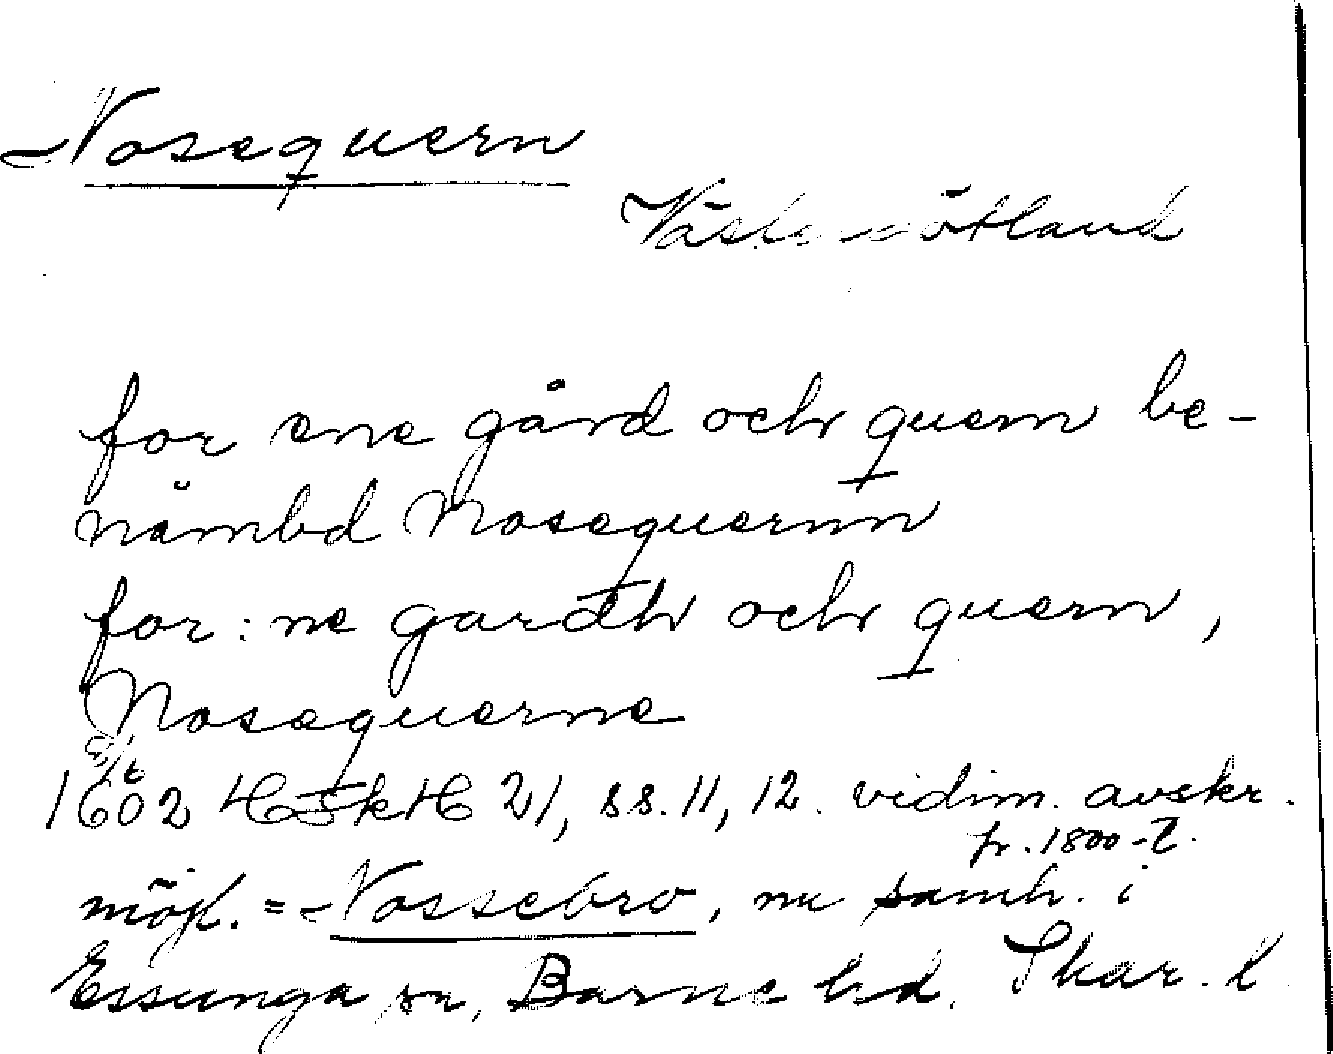 Nosequern
Västergötland
for ene gård och quern be-
nämbd Nosequernn
for: ne gardh och quern,
Nosequerne
1602 HSkH 21, ss. 11, 12. vidim. avskr.
fr. 1800-t.
möjl. = Nossebro, nu samh. i
Essunga sn, Barne hd. Skar. l